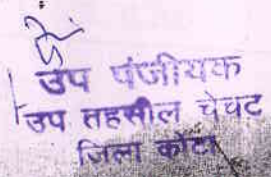 उप पंजीयक
उप तहसील चेचट
जिला कोटा